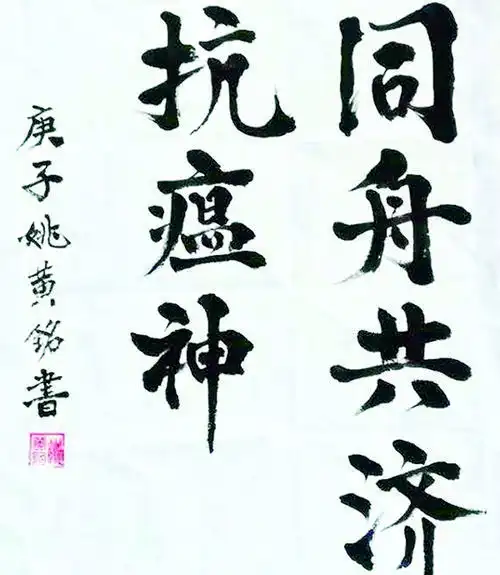 同舟共济
抗瘟神
庚子姚黄铭书